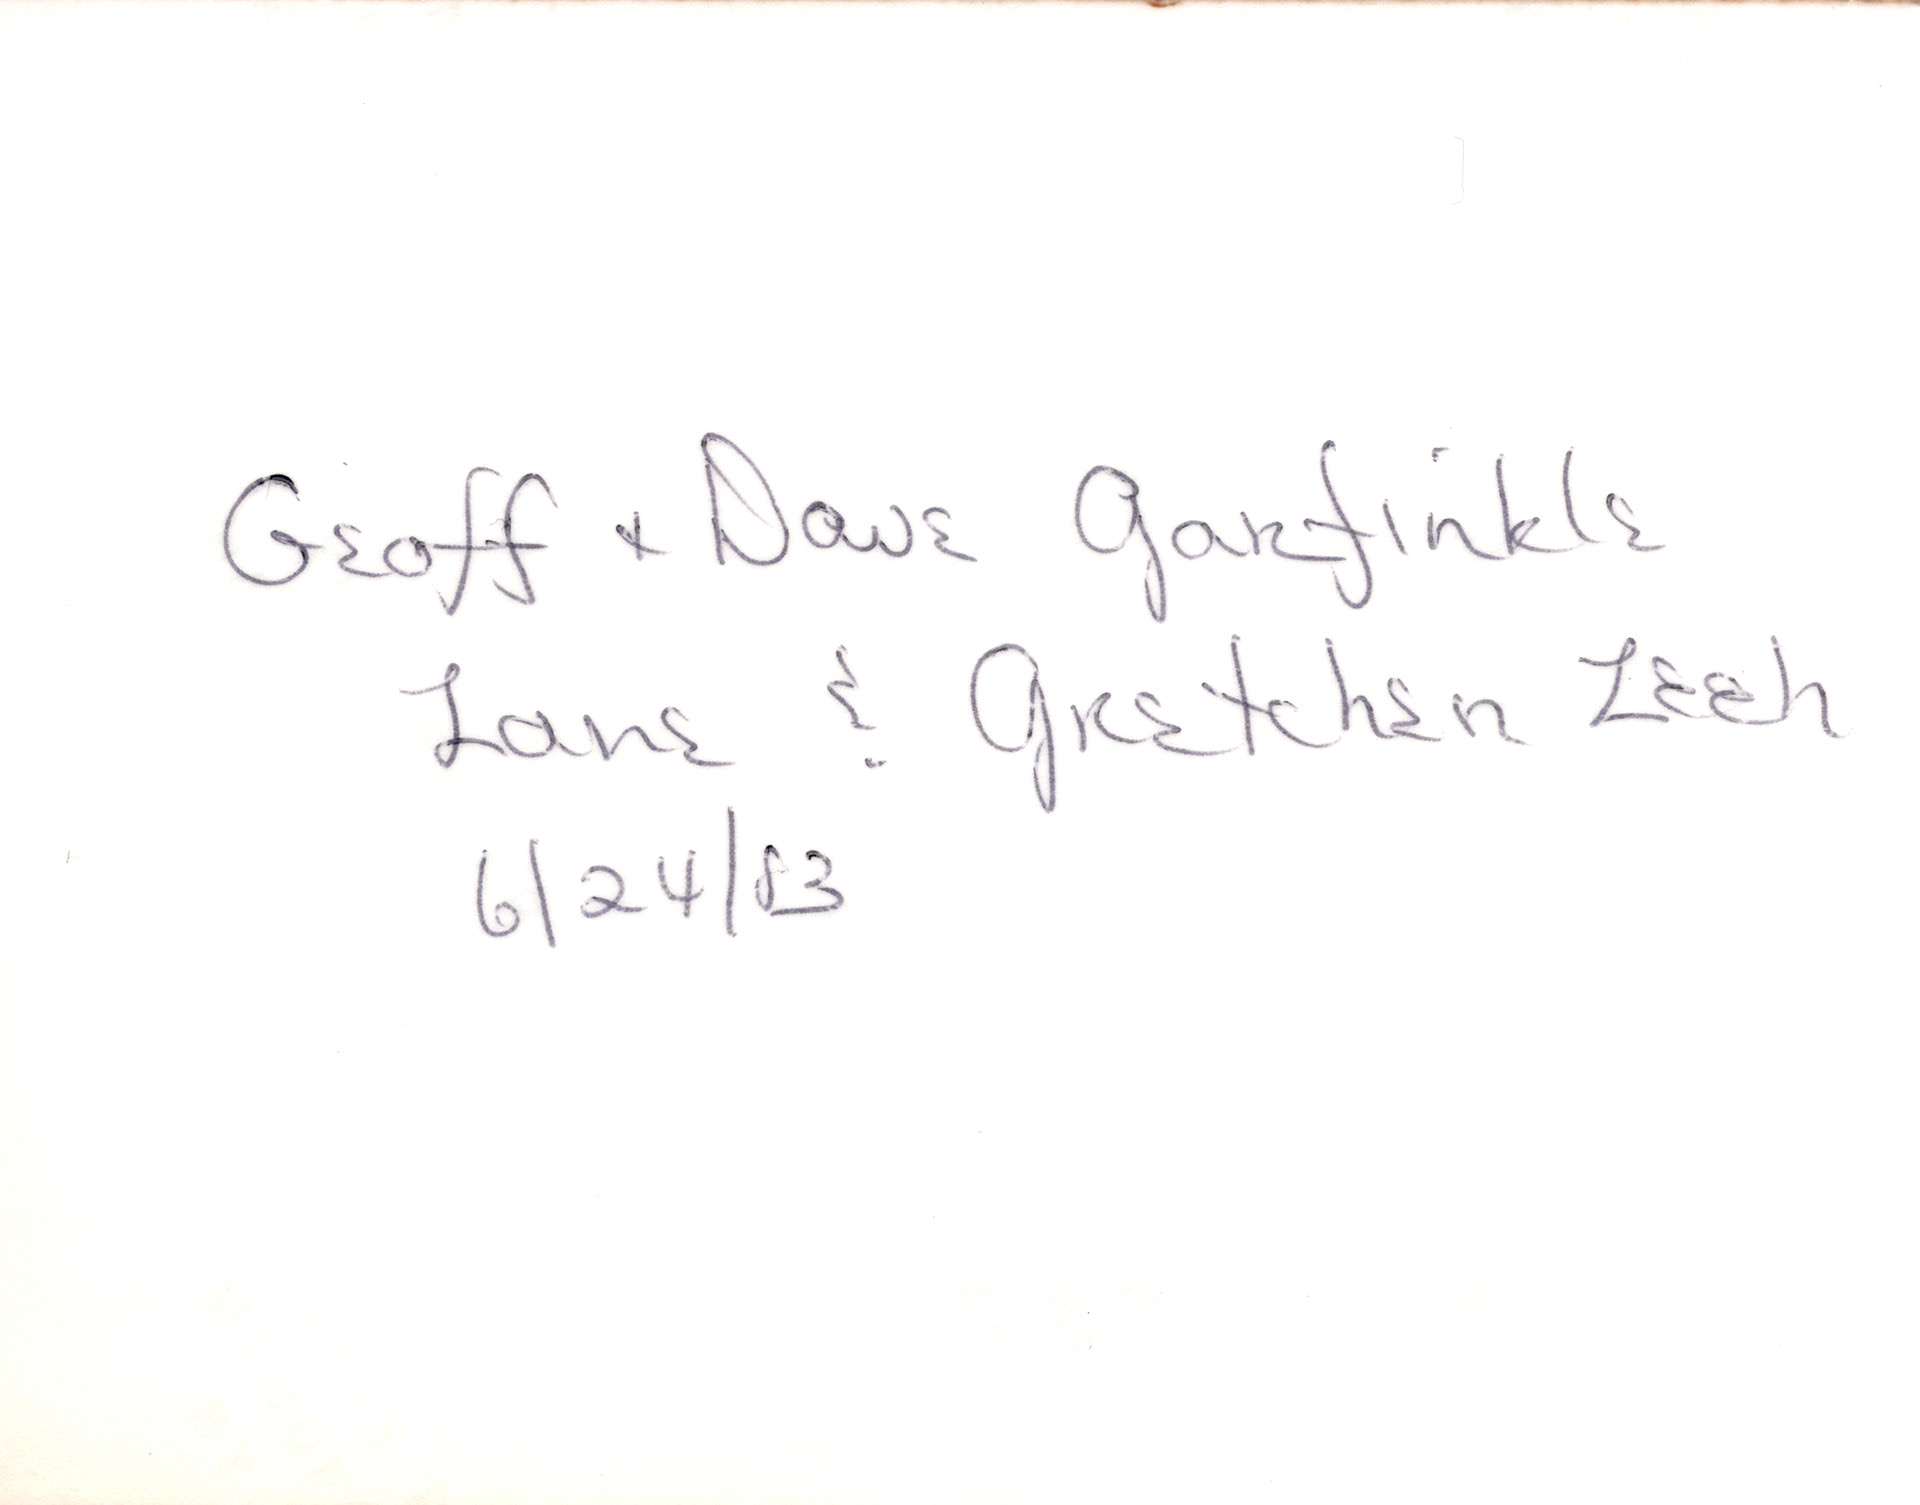 Geoff & Dave Garfinkle
Lane & Gretchen Leeh
6/24/83